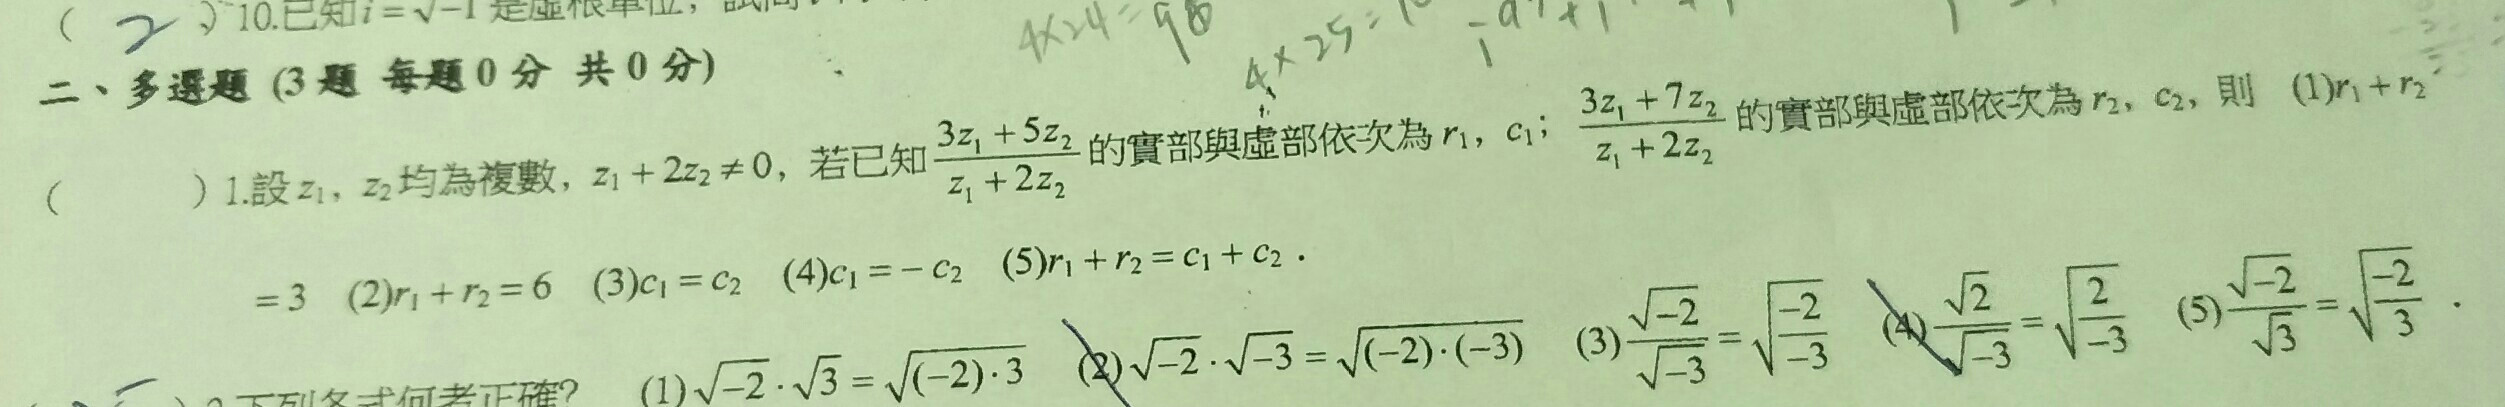 ( 2 ) 10.已知 i = √-1 是虛根單位,
4×24=98
4×25=
二、多選題 (3 題 每題 0 分 共 0 分)
( ) 1.設 z₁, z₂ 均為複數, z₁ + 2z₂ ≠ 0, 若已知 (3z₁ + 5z₂)/(z₁ + 2z₂) 的實部與虛部依次為 r₁, c₁; (3z₁ + 7z₂)/(z₁ + 2z₂) 的實部與虛部依次為 r₂, c₂, 則 (1)r₁ + r₂
= 3 (2)r₁ + r₂ = 6 (3)c₁ = c₂ (4)c₁ = − c₂ (5)r₁ + r₂ = c₁ + c₂ .
) 2.下列各式何者正確? (1)√-2 · √3 = √((-2)·3) (2)√-2 · √-3 = √((-2)·(-3)) (3)√-2/√-3 = √(-2/-3) (4)√2/√-3 = √(2/-3) (5)√-2/√3 = √(-2/3) .